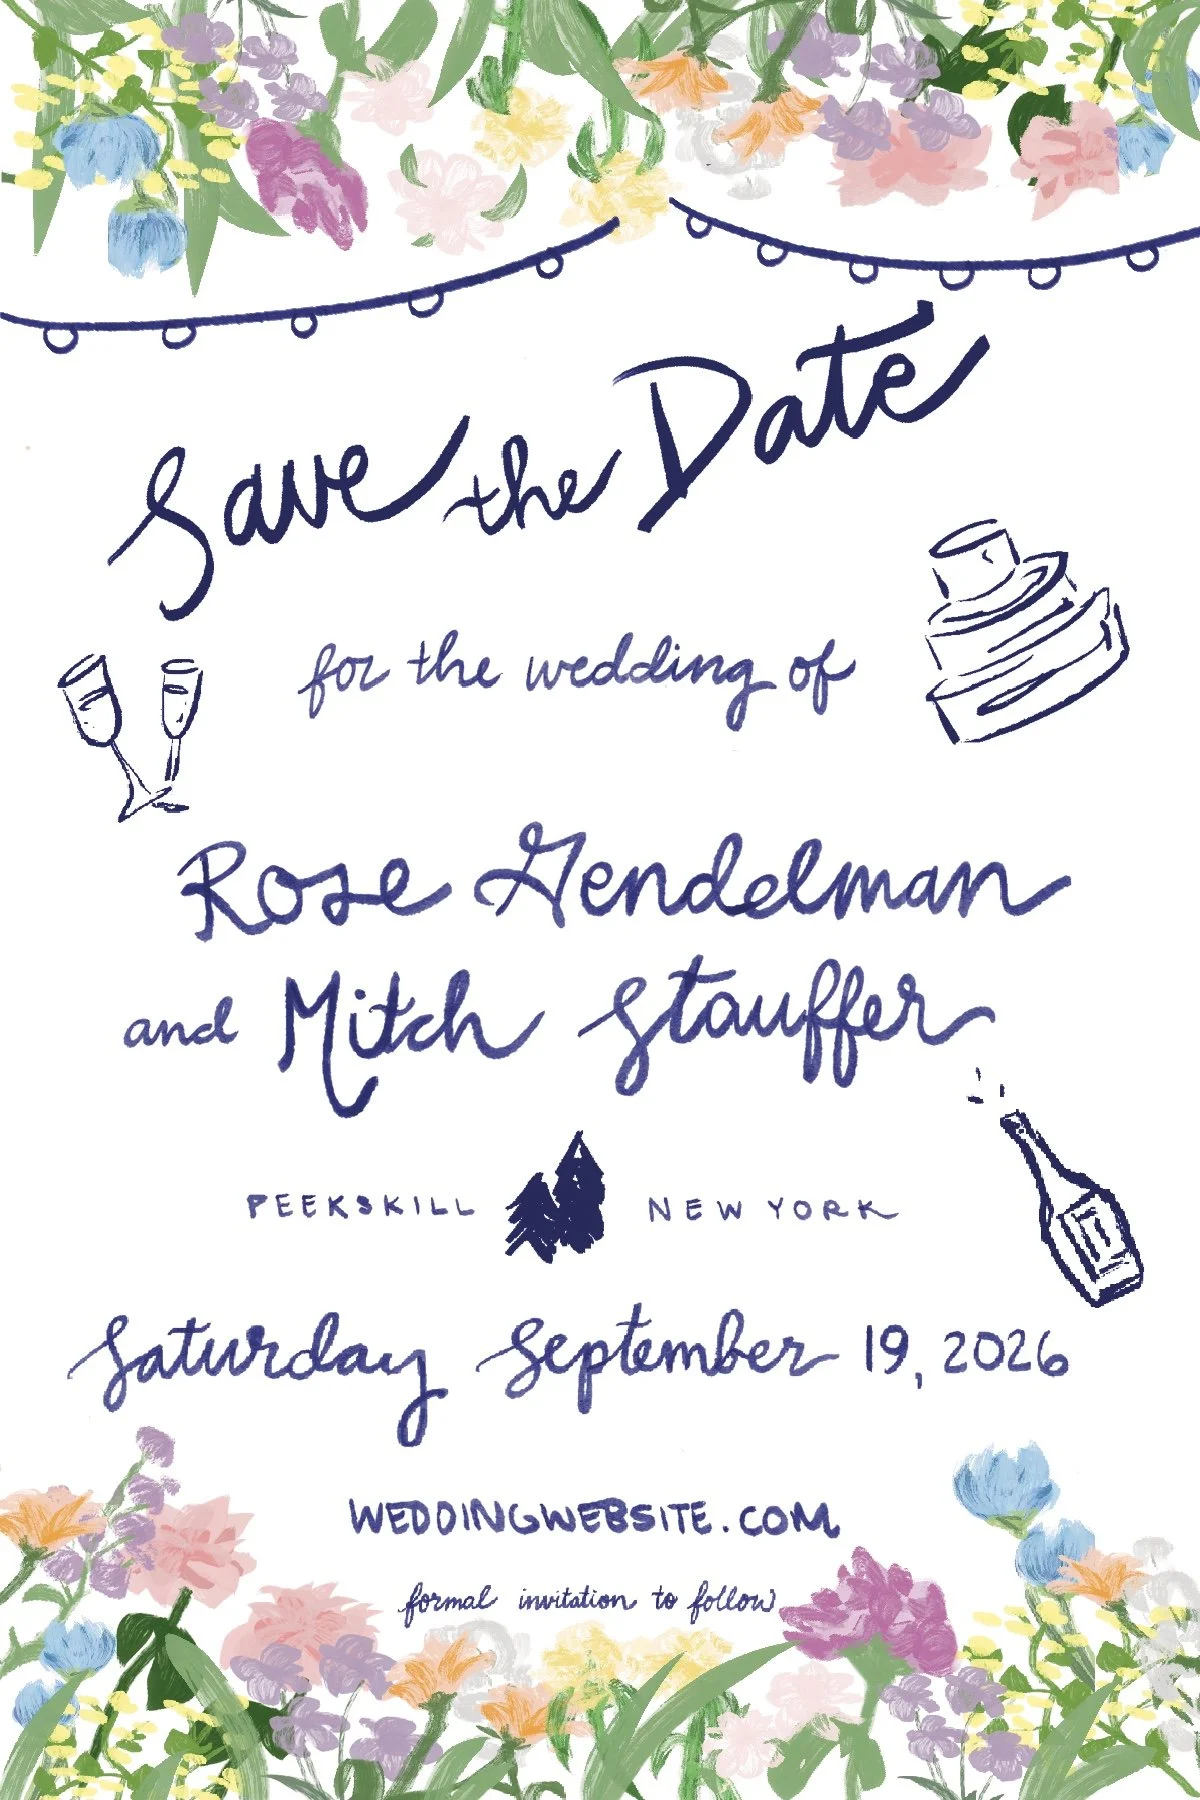 Save the Date
for the wedding of
Rose Gendelman
and Mitch Stauffer
PEEKSKILL NEW YORK
Saturday September 19, 2026
WEDDINGWEBSITE.COM
formal invitation to follow